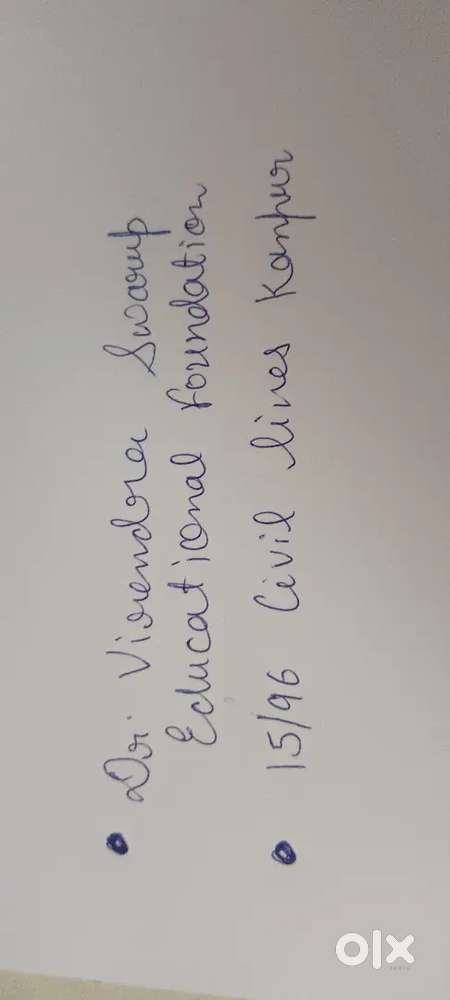 • Dr. Virendra Swarup
Educational foundation
• 15/96 Civil lines Kanpur
olx